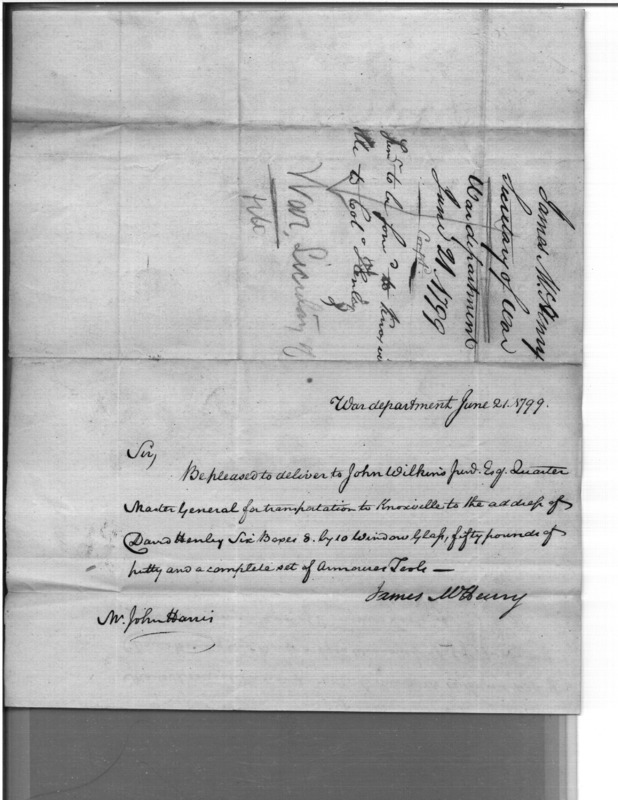 James McHenry
Secretary of War
War department
June 21. 1799
to be
to Knoxville
to Col. Henley
War, Secretary of
War department June 21. 1799.
Sir,
Be pleased to deliver to John Wilkins Junr. Esq. Quarter
Master General for transportation to Knoxville to the address of
David Henley Six Boxes 8. by 10 Window Glass, fifty pounds of
putty and a complete set of Armourers Tools —
James McHenry
Mr. John Harris